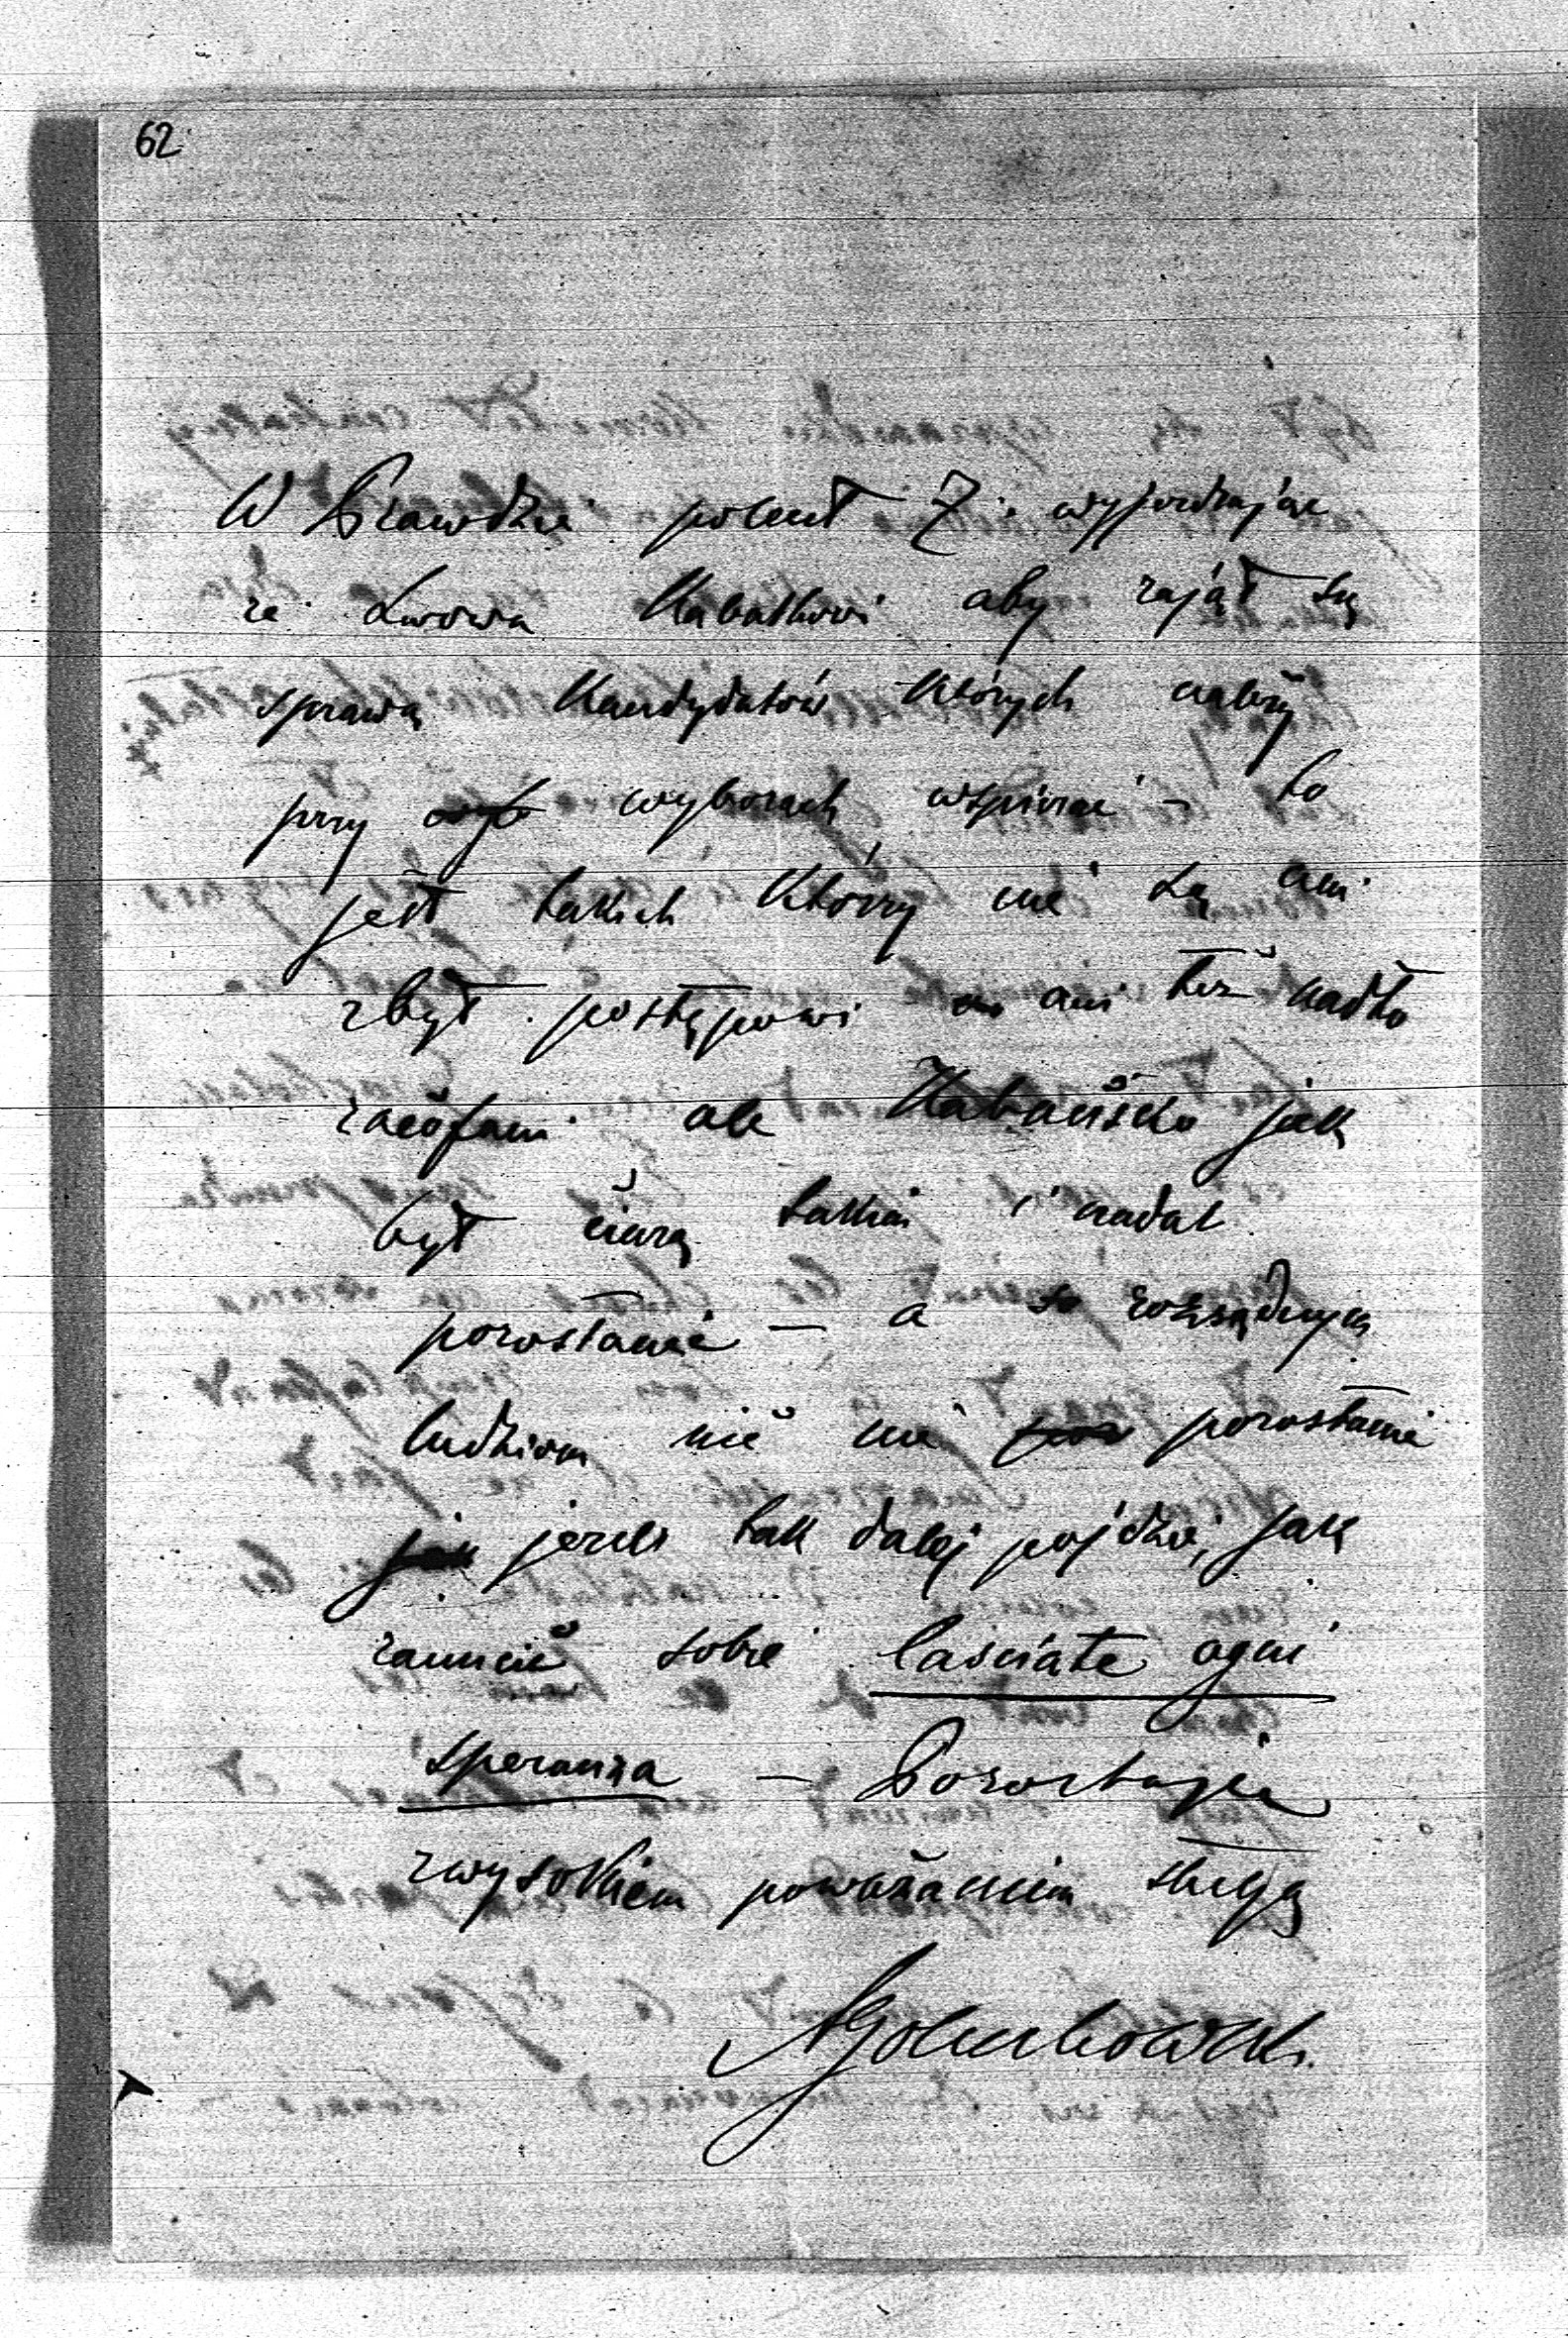 62
W Prawdzie polecił Z. wyjeżdżając
ze Lwowa Kabatkowi aby zajął się
sprawą Kandydatów których należy
przy wyborach wspierać – to
jest takich którzy nie są ani
zbyt postępowi ani też nadto
zacofani ale jak
był takim i nadal
pozostanie – a rozsądnym
ludziom nić nie pozostanie
jeżeli tak dalej pójdzie, jak
zanucić sobie lasciate ogni
speranza – Pozostaje
z wysokiem poważaniem sługą
AGołuchowski